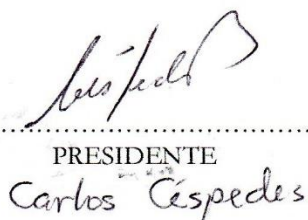 PRESIDENTE
Carlos Céspedes